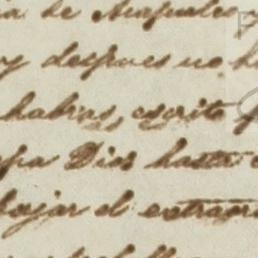 de Aranjuez
y despues no h
habras, escrito
epa Dios hasta
bajar el extraor